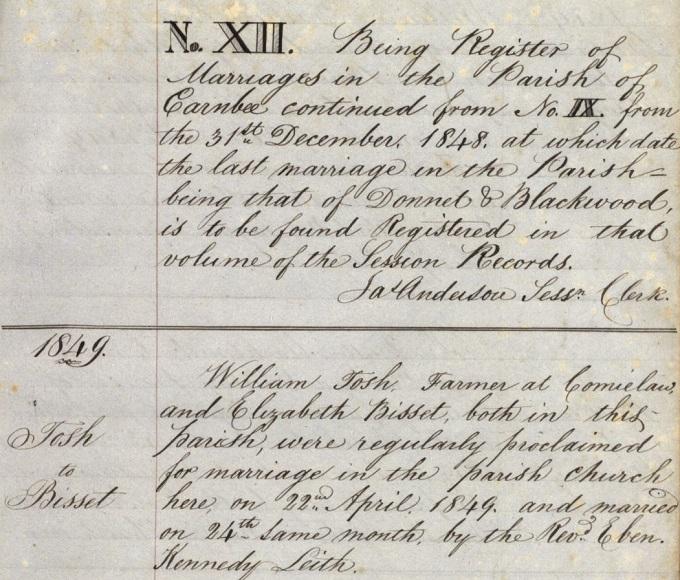 No. XIII. Being Register of
Marriages in the Parish of
Carnbee continued from No. IX. from
the 31st December, 1848. at which date
the last marriage in the Parish=
being that of Donnet & Blackwood,
is to be found Registered in that
volume of the Session Records.
Jas Anderson Sessn. Clerk.
1849.
Tosh
to
Bisset
William Tosh, Farmer at Comielaw,
and Elizabeth Bisset, both in this
parish, were regularly proclaimed
for marriage in the parish church
here, on 22nd April, 1849. and married
on 24th same month, by the Revd. Eben.
Kennedy Leith.